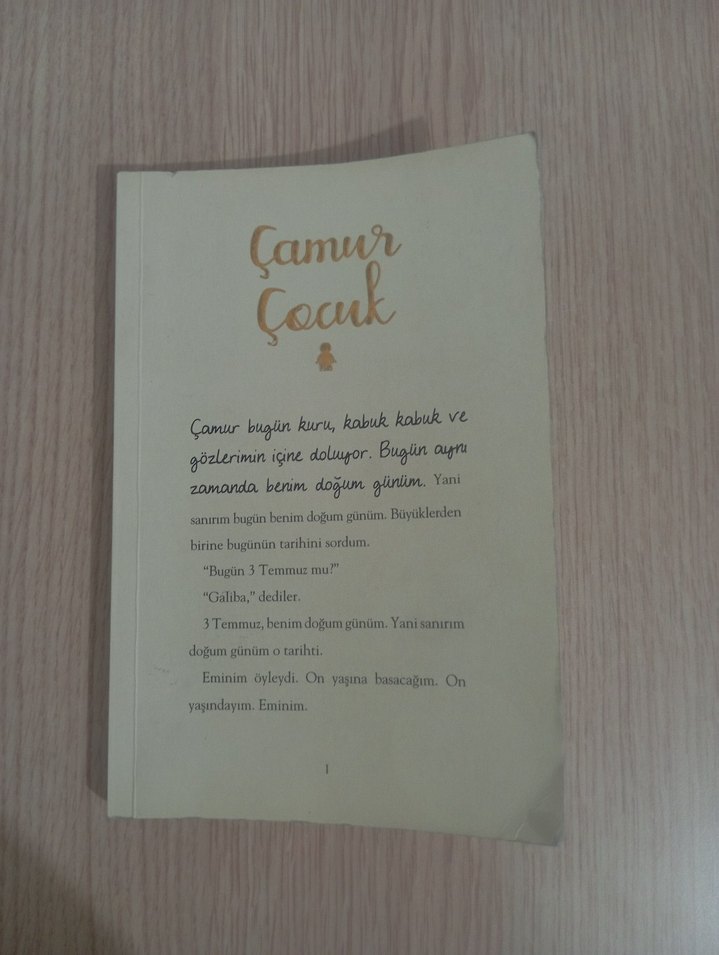 Çamur
Çocuk
Çamur bugün kuru, kabuk kabuk ve
gözlerimin içine doluyor. Bugün aynı
zamanda benim doğum günüm. Yani
sanırım bugün benim doğum günüm. Büyüklerden
birine bugünün tarihini sordum.
“Bugün 3 Temmuz mu?”
“Galiba,” dediler.
3 Temmuz, benim doğum günüm. Yani sanırım
doğum günüm o tarihti.
Eminim öyleydi. On yaşına basacağım. On
yaşındayım. Eminim.
1